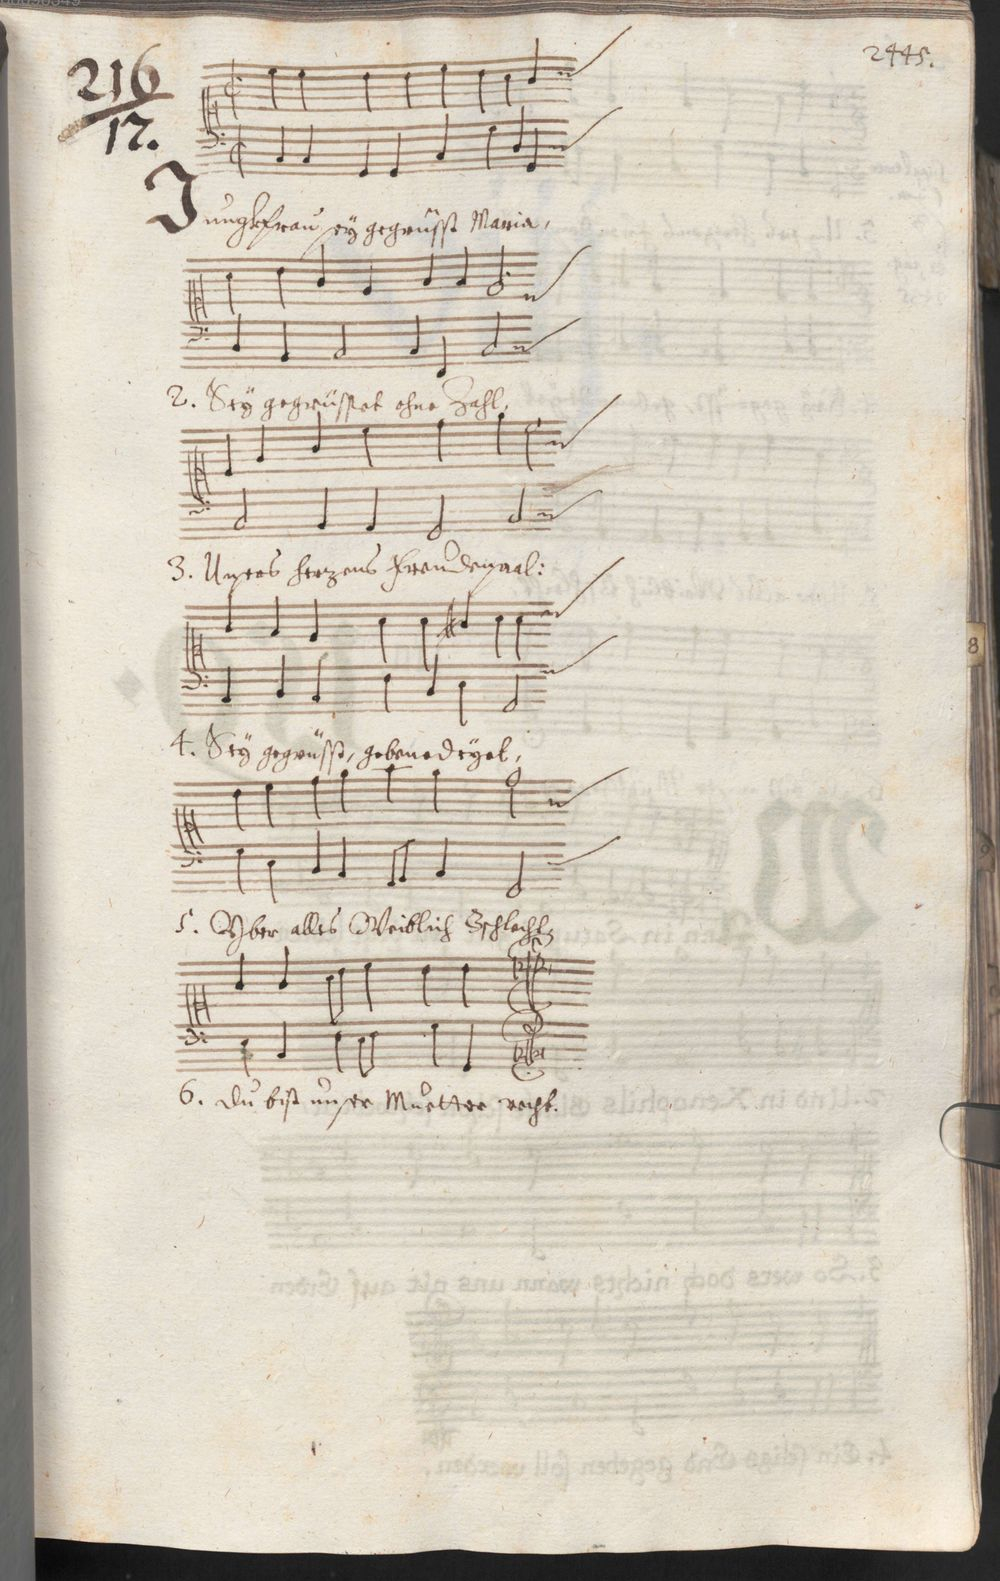 2445.
216
17.
Jungkfrau sey gegrüsst Maria,
2. Sey gegrüsset ohne Zahl,
3. Unsers hertzens Freudensaal:
4. Sey gegrüsst, gebenedeyet,
5. Yber alles Weiblich Gschlecht
6. du bist unser Muetter recht.
8